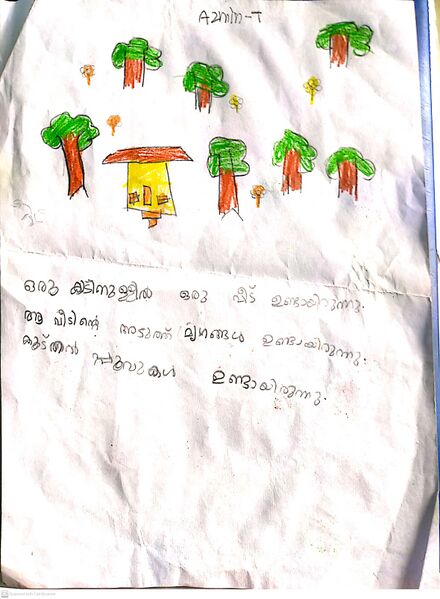 Azmin-T
ഒരു കട്ടിനുള്ളിൽ ഒരു വീട് ഉണ്ടായിരുന്നു.
ആ വീടിന്റെ അടുത്ത് മൃഗങ്ങൾ ഉണ്ടായിരുന്നു.
കൂട്തൽ പ്പൂവുകൾ ഉണ്ടായിരുന്നു.